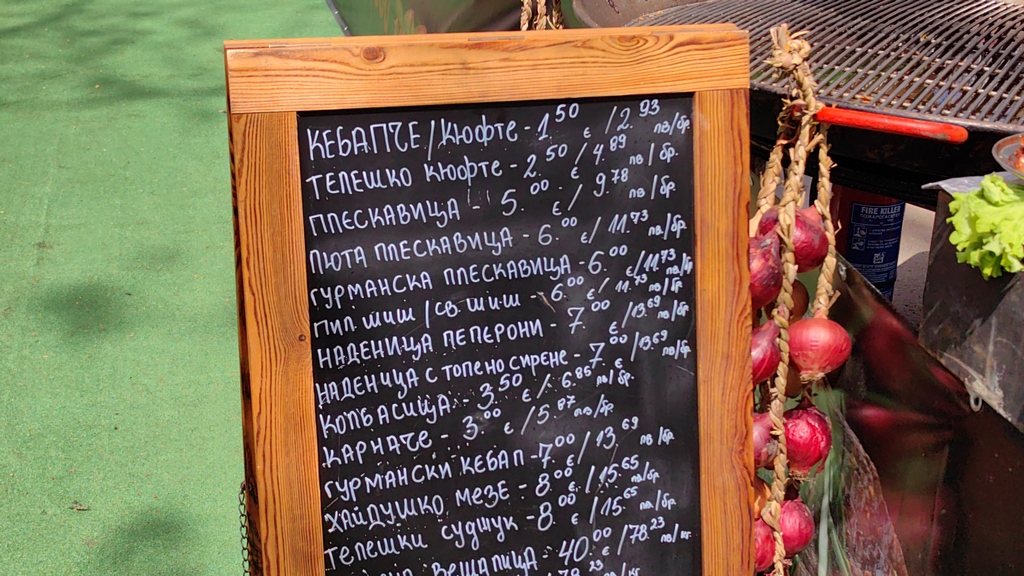 КЕБАПЧЕ / Кюфте - 1.50 € / 2.93 лв/бр.
ТЕЛЕШКО Кюфте - 2.50 € / 4.89 лв/бр.
ПЛЕСКАВИЦА 5.00 € / 9.78 лв/бр.
ЛЮТА ПЛЕСКАВИЦА - 6.00 € / 11.73 лв/бр.
ГУРМАНСКА ПЛЕСКАВИЦА - 6.00 € / 11.73 лв/бр
ПИЛ. ШИШ / СВ. ШИШ - 6.00 € / 11.73 лв/бр.
НАДЕНИЦА ПЕПЕРОНИ - 7.00 € / 13.69 лв/бр.
НАДЕНИЦА С ТОПЕНО СИРЕНЕ - 7.00 € / 13.69 лв/бр.
КОЛБАСИЦА - 3.50 € / 6.85 лв/бр.
КАРНАЧЕ - 3.00 € / 5.87 лв/бр.
ГУРМАНСКИ КЕБАП - 7.00 € / 13.69 лв/бр.
ХАЙДУШКО МЕЗЕ - 8.00 € / 15.65 лв/бр.
ТЕЛЕШКИ СУДЖУК - 8.00 / 15.65 лв/бр.
ВЕШАЛИЦА - 40.00 / 78.23 лв/кг.
FIRE KILLER